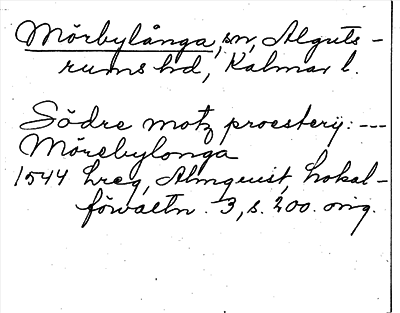 Mörbylånga, sn, Alguts-
rums hd, Kalmar l.
Södre motz proesterij: ---
Mörebylonga
1544 hreg, Almquist, Lokal-
förvaltn. 3, s. 200. orig.